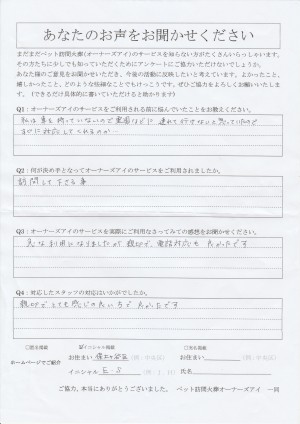 あなたのお声をお聞かせください
まだまだペット訪問火葬(オーナーズアイ)のサービスを知らない方がたくさんいらっしゃいます。
その方たちに少しでも知っていただくためにアンケートにご協力いただけないでしょうか。
あなた様のご意見をお聞かせいただき、今後の活動に反映したいと考えています。よかったこと、
嬉しかったこと、どのような些細なことでもけっこうです。ぜひご協力をよろしくお願いいたしま
す。(できるだけ具体的に書いていただけると助かります)
Q1:オーナーズアイのサービスをご利用される前に悩んでいたことをお教えください。
私は車を持っていないので霊園などに連れて行けないと思っていたので
すぐに対応してくれるのか…
Q2:何が決め手となってオーナーズアイのサービスをご利用されましたか。
訪問して下さる事
Q3:オーナーズアイのサービスを実際にご利用なさってみての感想をお聞かせください。
急な利用になりましたが親切で、電話対応も良かったです
Q4:対応したスタッフの対応はいかがでしたか。
親切でとても感じの良いもので良かったです
□匿名掲載 ☑イニシャル掲載 □実名掲載
ホームページでご紹介
お住まい (例:中央区) お住まい (例:中央区)
イニシャル E.S 氏名
ご協力、本当にありがとうございました。 ペット訪問火葬オーナーズアイ 一同